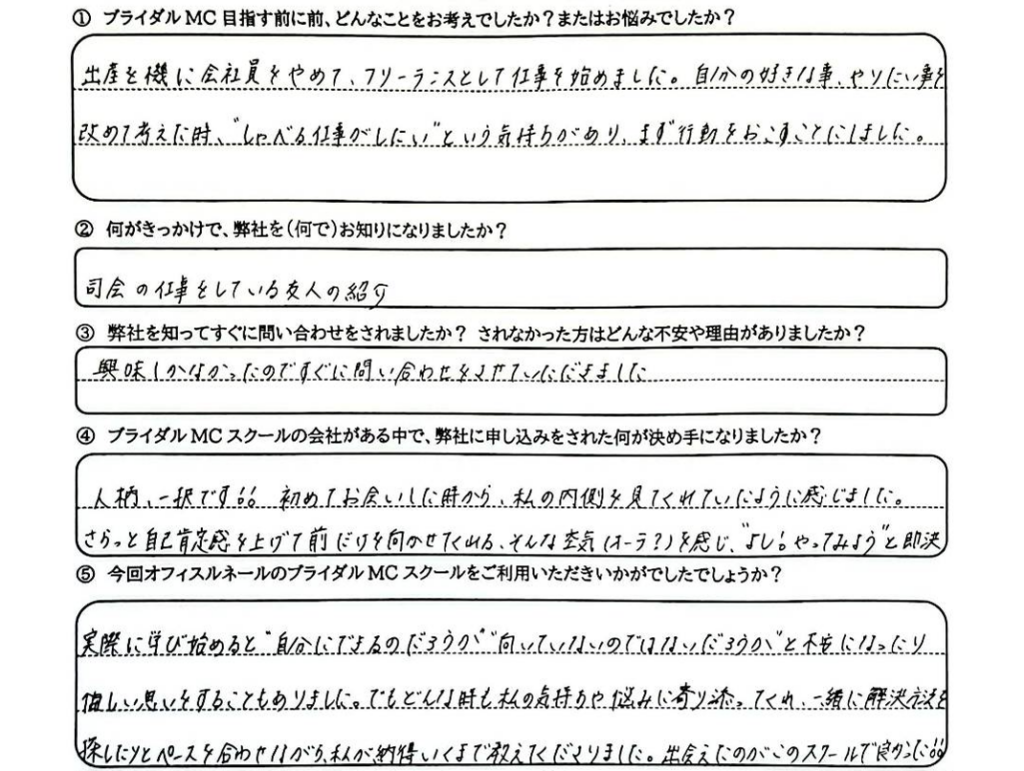 ① ブライダルMC目指す前に前、どんなことをお考えでしたか？またはお悩みでしたか？
出産を機に会社員をやめて、フリーランスとして仕事を始めました。自分の好きな事、やりたい事を
改めて考えた時、"しゃべる仕事がしたい"という気持ちがあり、まず行動をおこすことにしました。
② 何がきっかけで、弊社を(何で)お知りになりましたか？
司会の仕事をしている友人の紹介
③ 弊社を知ってすぐに問い合わせをされましたか？ されなかった方はどんな不安や理由がありましたか？
興味しかなかったのですぐに問い合わせをさせていただきました
④ ブライダルMCスクールの会社がある中で、弊社に申し込みをされた何が決め手になりましたか？
人柄、一択です!! 初めてお会いした時から、私の内側を見てくれていたように感じました。
さらっと自己肯定感を上げて前だけを向かせてくれる、そんな空気(オーラ?)を感じ、"よし!やってみよう"と即決
⑤ 今回オフィスルネールのブライダルMCスクールをご利用いただきいかがでしたでしょうか？
実際に学び始めると"自分にできるのだろうか""向いていないのではないだろうか"と不安になったり
悔しい思いをすることもありました。でもどんな時も私の気持ちや悩みに寄り添ってくれ、一緒に解決方法を
探したりとペースを合わせながら、私が納得いくまで教えてくださりました。出会えたのがこのスクールで良かった!!